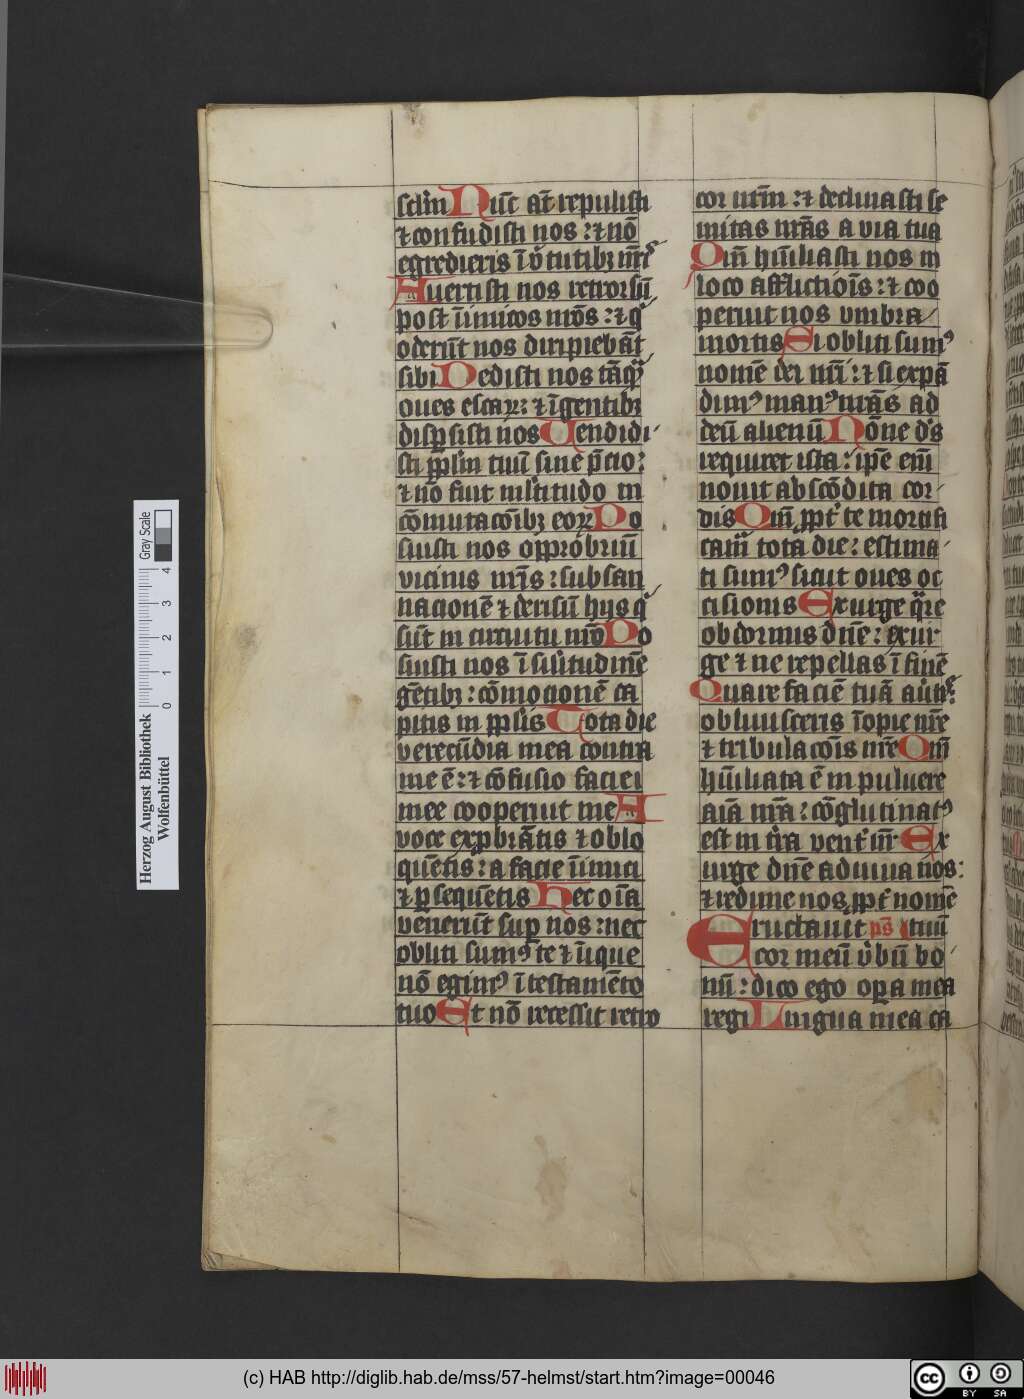 sclm̄ Nūc at̄ repulisti
⁊ confudisti nos : ⁊ nō
egredieris ī v̾tutibꝫ nr̄is
Auertisti nos retrorsū
post inimicos nr̄os : ⁊ q̓
oderūt nos diripiebāt
sibi Dedisti nos tāq̄ȝ
oues escaꝝ : ⁊ ī gentibꝫ
disꝑsisti nos Uendidi-
sti pplm̄ tuū sine p̄cio :
⁊ nō fuit ml̄titudo in
cōmutacōibꝫ eoꝝ Po
suisti nos oppróbriū
vicinis nr̄is : subsan
nacionē ⁊ derisū hijs q̓
sūt in circuitu nr̄o Po
suisti nos ī sil̄itudinē
gētibꝫ : cōmocionē ca
pitis in pplīs Tota die
verecūdia mea contra
me ē : ⁊ cōfusio faciei
mee cooperuit me A
voce exprobrātis ⁊ oblo
quētis : a facie inimici
⁊ ꝑsequētis Hec oīa
venerūt suꝑ nos : nec
obliti sumꝰ te ⁊ īique
nō egimꝰ ī testamēto
tuo Et nō recessit retro
cor nr̄m : ⁊ declinasti se
mitas nr̄as a via tua
Qm̄ hūiliasti nos in
loco afflictiōis : ⁊ coo
peruit nos vmbra
mortis Si obliti sumꝰ
nomē dei nr̄i : ⁊ si expā
dimꝰ manꝰ nr̄as ad
deū alienū Nōne d̄s
requiret ista : ip̄e em̄
nouit abscōdita cor-
dis Qm̄ ppt̄ te mortifi
cam̄ tota die : estima-
ti sumꝰ sicut oues oc
cisionis Exurge q̄re
obdormis dn̄e : exur-
ge ⁊ ne repellas ī finē
Quare faciē tuā aūtis :
obliuisceris īopie nr̄e
⁊ tribulacōis nr̄e Qm̄
hūiliata ē in puluere
aīa nr̄a : cōglutinatꝰ
est in t̄ra vent̄ nr̄ Ex
urge dn̄e adiuua nos :
⁊ redime nos ppt̄ nomē
Eructauit ps̄ tuū
cor meū v̾bū bo-
nū : dico ego oꝑa mea
regi Lingua mea ca
Herzog August Bibliothek
Wolfenbüttel
0 1 2 3 4
Gray Scale
(c) HAB http://diglib.hab.de/mss/57-helmst/start.htm?image=00046
cc BY SA